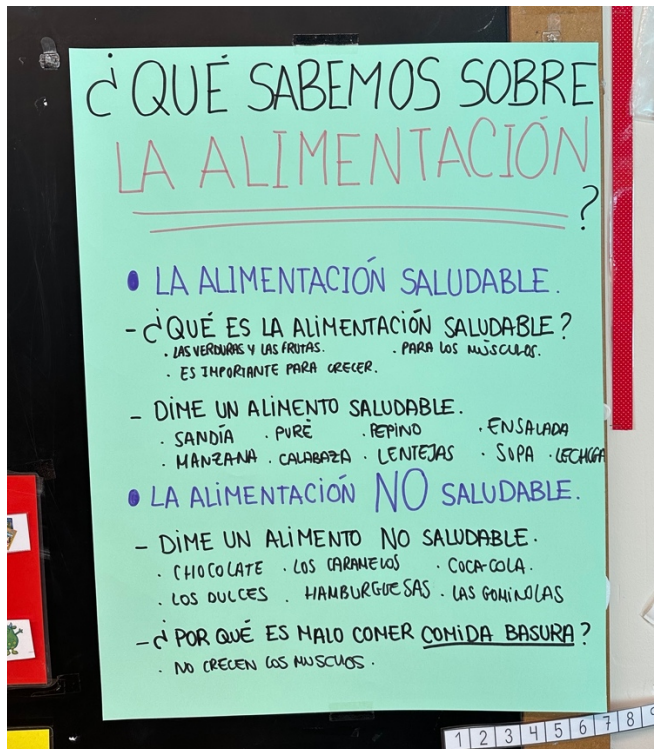 ¿QUÉ SABEMOS SOBRE
LA ALIMENTACIÓN
?
• LA ALIMENTACIÓN SALUDABLE.
- ¿QUÉ ES LA ALIMENTACIÓN SALUDABLE?
· LAS VERDURAS Y LAS FRUTAS. · PARA LOS MÚSCULOS.
· ES IMPORTANTE PARA CRECER.
- DIME UN ALIMENTO SALUDABLE.
· SANDÍA · PURÉ · PEPINO · ENSALADA
· MANZANA · CALABAZA · LENTEJAS · SOPA · LECHUGA
• LA ALIMENTACIÓN NO SALUDABLE.
- DIME UN ALIMENTO NO SALUDABLE.
· CHOCOLATE · LOS CARAMELOS · COCA-COLA.
· LOS DULCES · HAMBURGUESAS · LAS GOMINOLAS
- ¿POR QUÉ ES MALO COMER COMIDA BASURA?
· NO CRECEN LOS MUSCULOS.
1 2 3 4 5 6 7 8 9